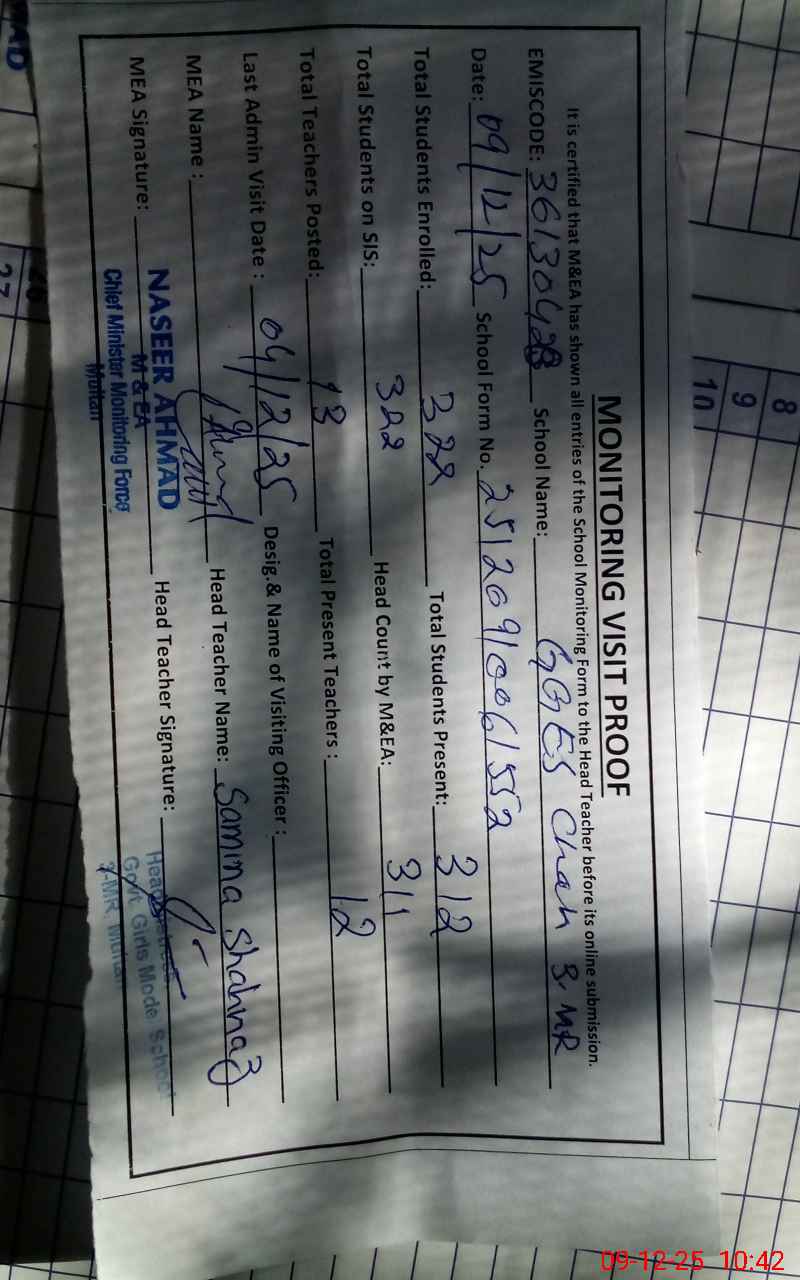 MONITORING VISIT PROOF
It is certified that M&EA has shown all entries of the School Monitoring Form to the Head Teacher before its online submission.
EMISCODE: 36130428 School Name: GGES Chah 3-MR
Date: 09/12/25 School Form No. 25120910061552
Total Students Enrolled: 322 Total Students Present: 312
Total Students on SIS: 322 Head Count by M&EA: 311
Total Teachers Posted: 13 Total Present Teachers : 12
Last Admin Visit Date : 04/12/25 Desig.& Name of Visiting Officer :
MEA Name : Head Teacher Name: Samina Shahnaz
MEA Signature: Head Teacher Signature:
NASEER AHMAD
M & EA
Chief Minister Monitoring Force
Multan
Govt. Girls Model School
-MR. Multan
8
9
10
27
09-12-25 10:42